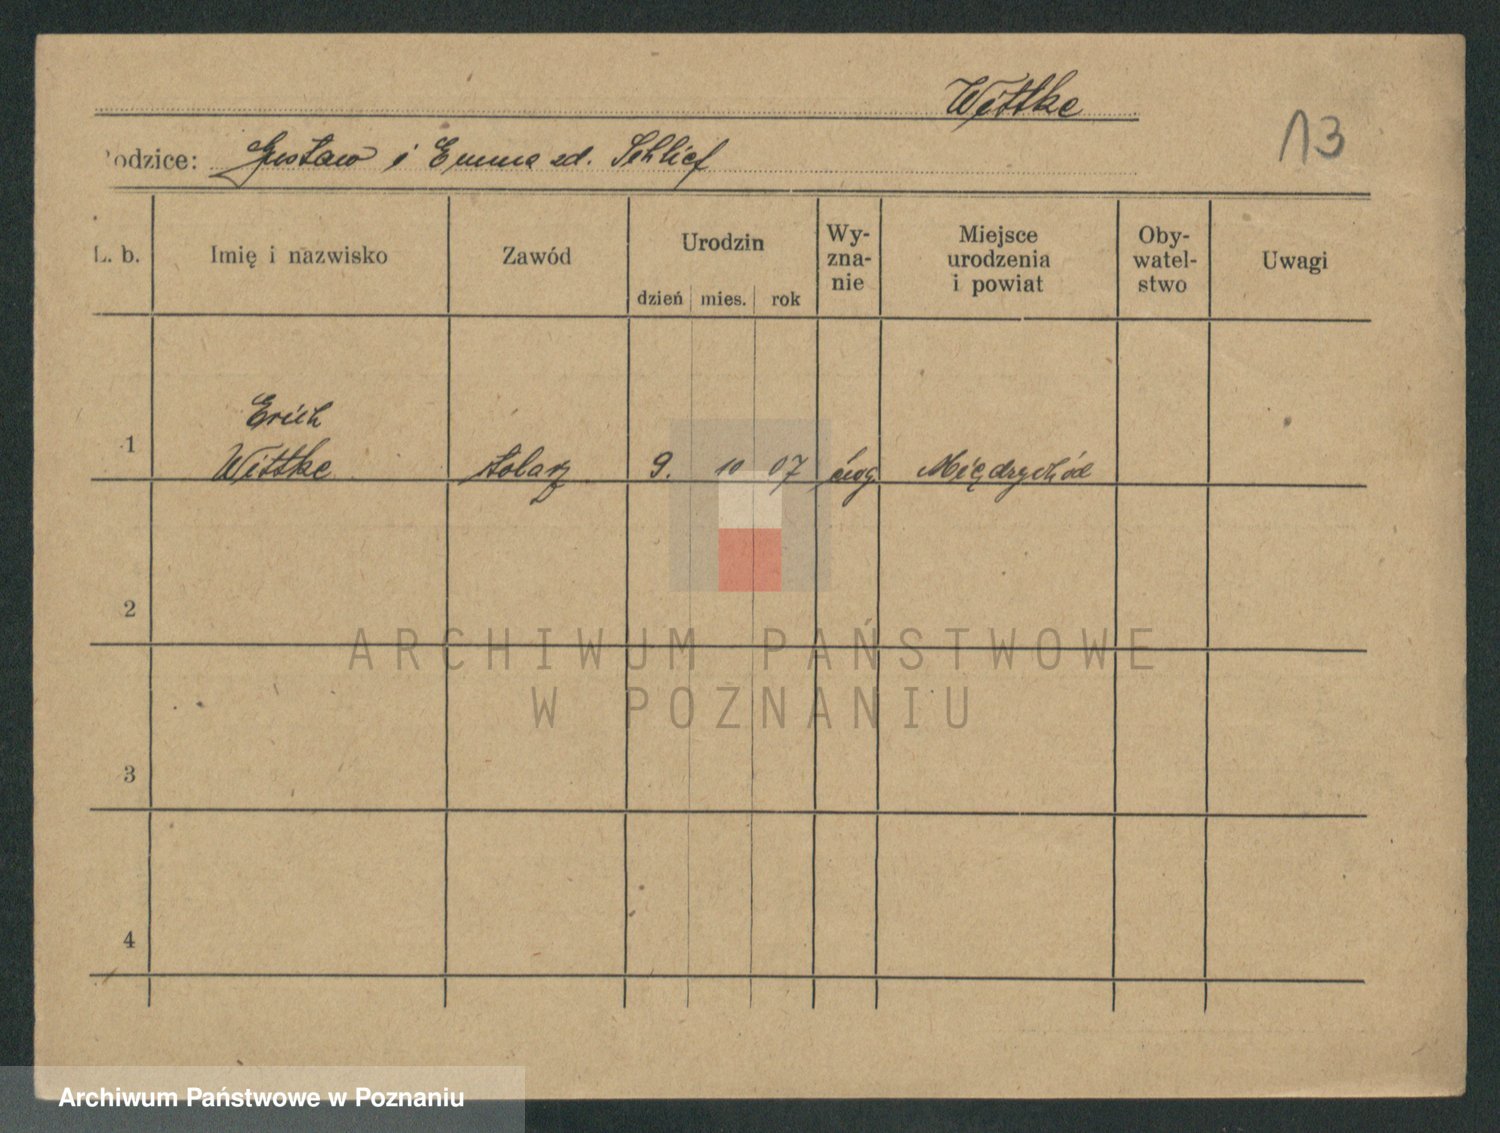 Wittke
Rodzice: Gustaw i Emma zd. Schlief
13
L. b.
Imię i nazwisko
Zawód
Urodzin
dzień mies. rok
Wy-
zna-
nie
Miejsce
urodzenia
i powiat
Oby-
watel-
stwo
Uwagi
Erich
1 Wittke stolarz 9. 10 07 Międzychód
2
3
4
ARCHIWUM PAŃSTWOWE
W POZNANIU
Archiwum Państwowe w Poznaniu